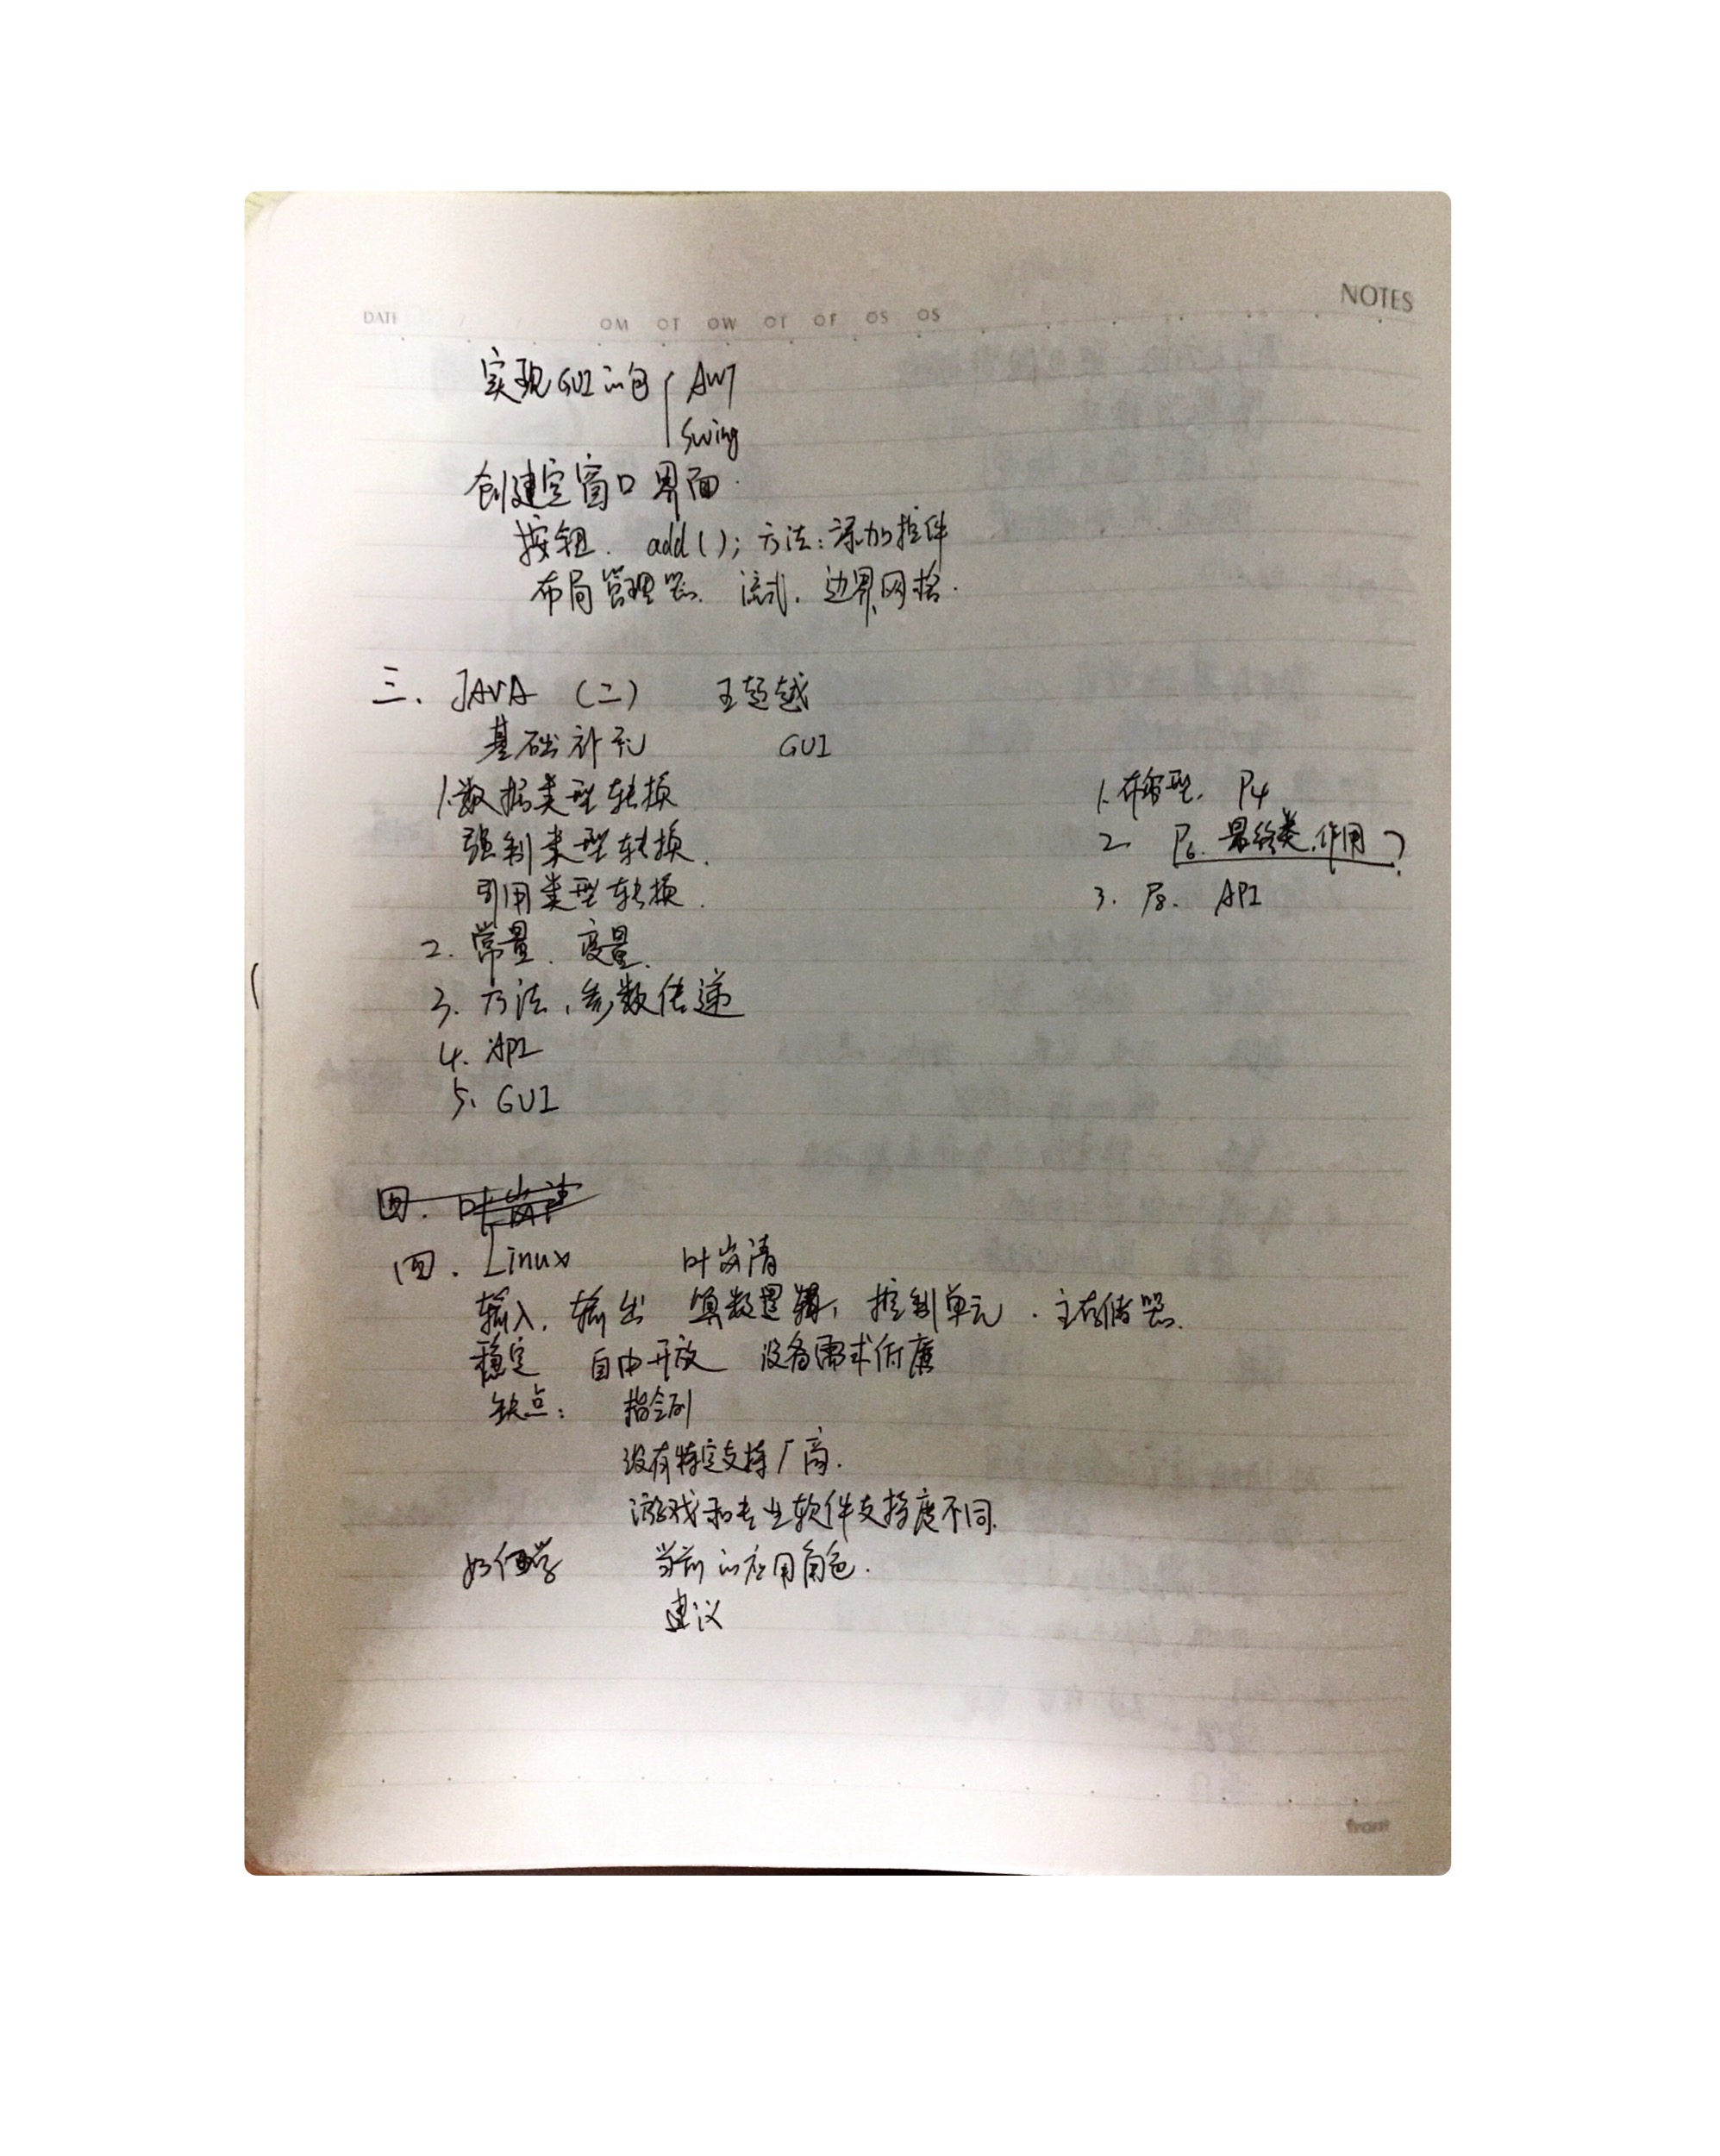 NOTES
DATE / / OM OT OW OT OF OS OS
实现GUI的包 AWT
Swing
创建空窗口界面.
按钮. add(); 方法:添加控件
布局管理器. 流式. 边界、网格.
三. JAVA (二) 王超越
基础补充 GUI
1.数据类型转换
强制类型转换.
引用类型转换.
2. 常量. 变量.
3. 方法、参数传递
4. API
5. GUI
1. 布尔型. P4
2. P6. 最终类.作用?
3. P8. API
四.
四. Linux 叶岚清
输入. 输出 算数逻辑, 控制单元. 主存储器.
稳定 自由开放 设备需求低廉
缺点: 指令列
没有特定支持厂商.
游戏和专业软件支持度不同.
如何学 当前的应用角色.
建议
front